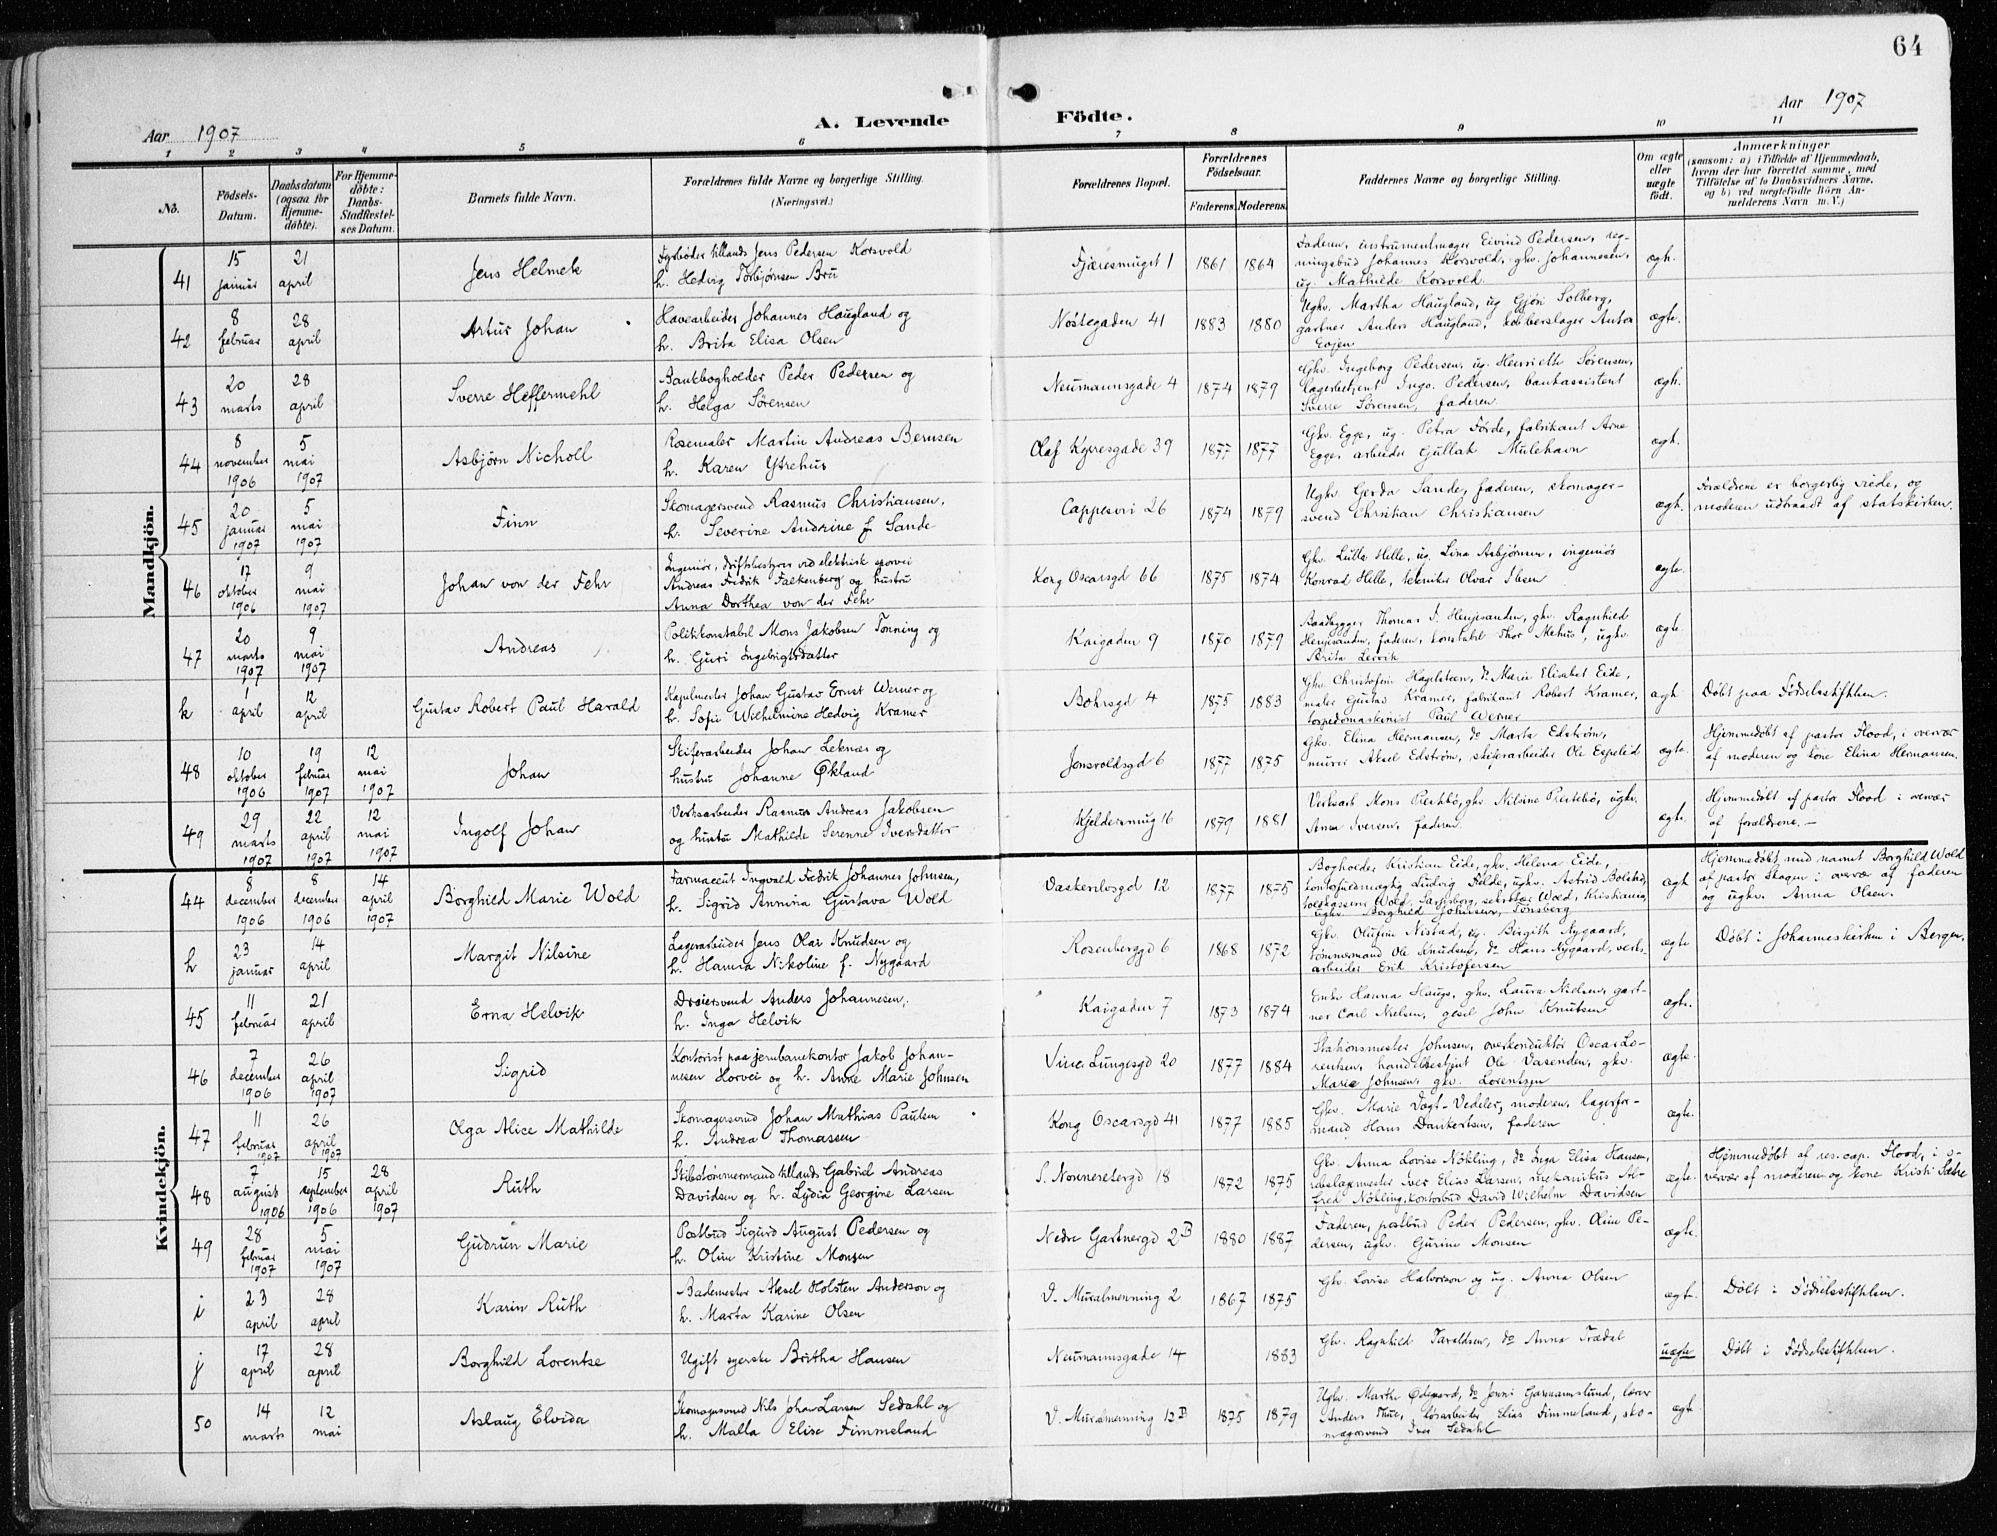 64
Aar 1907
A. Levende Födte.
Aar 1907
1 2 3 4 5 6 7 8 9 10 11
No.
Födsels-
Datum.
Daabsdatum
(ogsaa for
Hjemme-
döbte).
For Hjemme-
döbte:
Daabs-
Stadfæstel-
ses Datum.
Barnets fulde Navn.
Forældrenes fulde Navne og borgerlige Stilling.
(Næringsvei.)
Forældrenes Bopæl.
Forældrenes
Födselsaar.
Faderens. Moderens.
Faddernes Navne og borgerlige Stilling.
Om ægte
eller
uægte
födt.
Anmærkninger
(saasom: a) i Tilfælde af Hjemmedaab,
hvem der har forrettet samme, med
Tilföielse af to Daabsvidners Navne,
og b) ved uægtefödte Börn An-
melderens Navn m. V.)
Mandkjön.
41
15 januar
21 april
Jens Helmek
Fyrbøder tillands Jens Pedersen Korsvold
h. Hedvig Torbjørnsen Bru
Fjæresmuget 1
1861 1864
Faderen, instrumentmager Eivind Pedersen, reg-
ningsbud Johannes Korsvold, ghv. Johannesen,
ug. Mathilde Korsvold.
ægh.
42
8 februar
28 april
Artur Johan
Havearbeider Johannes Haugland og
h. Brita Elisa Olsen
Nøstegaden 41
1883 1880
Ughv. Martha Haugland, ug Gjøri Solberg,
gartner Anders Haugland, kobberslager Anton
ægte.
43
20 marts
28 april
Sverre Heffermehl
Bankbogholder Peder Pedersen og
h. Helga Sørensen
Neumannsgade 4
1874 1879
Ghv. Ingeborg Pedersen, ug. Henriette Sørensen,
lagerbetjent Ingv. Pedersen, bankassistent
Sverre Sørensen, faderen
ægh.
44
8 november 1906
5 mai 1907
Asbjørn Nicholl
Rosemaler Martin Andreas Bernsen
h. Karen Ytrehus
Olaf Kyrresgade 39
1877 1877
Ghv. Egge, ug. Petra Förde, fabrikant Arne
Egge, arbeider Gullak Mulehavn
ægh.
45
20 januar 1907
5 mai 1907
Finn
Skomagersvend Rasmus Christiansen,
h. Severine Andrine f Sande
Cappesvei 26
1874 1879
Ughv. Gerda Sande, faderen, skomager-
svend Christian Christiansen
ægh.
Forældrene er borgerlig viede, og
moderen udtraadt af statskirken.
46
17 oktober 1906
9 mai 1907
Johan von der Fehr
Ingeniør, driftsbestyrer ved elektrisk sporvei
Andreas Fredrik Falkenberg og hustru
Anna Dorthea von der Fehr
Kong Oscarsgd 66
1875 1874
Ghv. Lulla Helle, ug. Lina Asbjørnsen, ingeniør
Konrad Helle, tekniker Olvar Ibsen
ægte.
47
20 marts 1907
9 mai 1907
Andreas
Politikonstabel Mons Jakobsen Tonning og
h. Guri Ingebrigtsdatter
Kaigaden 9
1870 1879
Thomas J. Henjesanden, ghv. Ragnhild
Henjesanden, faderen, konstabel Thor Mehus, ughv.
Brita Lervik
ægte.
k
1 april
12 april
Gustav Robert Paul Harald
Kapelmester Johan Gustav Ernst Werner og
h. Sofie Wilhelmine Hedvig Kramer
Bohrsgd 4
1875 1883
Ghv. Christofine Haglsteen, do Marie Elisabet Eide,
maler Gustav Kramer, fabrikant Robert Kramer,
torpedomaskinist Paul Werner
ægh
Døbt paa Fødselsstiftelsen.
48
10 oktober 1906
19 februar 1907
12 mai 1907
Johan
Skiferarbeider Johan Leknæs og
hustru Johanne Økland
Jonsvoldsgd 6
1877 1875
Ghv. Elina Hermansen, do Marta Edstrøm,
murer Aksel Edstrøm, skiferarbeider Ole Espelid
ægte.
Hjemmedøbt af pastor Flood, i overvær
af moderen og kone Elina Hermansen.
49
29 marts 1907
22 april 1907
12 mai 1907
Ingolf Johan
Verksarbeider Rasmus Andreas Jakobsen
og hustru Mathilde Serenne Iversdatter
Kjeldersmug 16
1879 1881
Verksarb Mons Prestbö, ghv Nilsine Prestebö, ughv.
Anna Iversen, faderen
ægte.
Hjemmedøbt af pastor Flood i overvær
af forældrene. —
Kvindekjön.
44
8 december 1906
8 december 1906
14 april 1907
Borghild Marie Wold
Farmaceut Ingvald Fredrik Johannes Johnsen,
h. Sigrid Annina Gustava Wold
Vaskerelvsgd 12
1877 1875
Bogholder Kristian Eide, ghv. Helena Eide,
kontofuldmægtig Ludvig Felde, ughv. Astrid Bolstad,
toldkasserer Wold, Sarpsborg, sekretær Wold, Kristiania,
ughv. Borghild Johnsen, Tønsberg
ægh
Hjemmedøbt med navnet Borghild Wold
af pastor Skagen i overvær af faderen
og ughv. Anna Olsen.
h
23 januar
14 april
Margit Nilsine
Lagerarbeider Jens Olai Knudsen og
h. Hanna Nikoline f. Nygaard
Rosenberggd 6
1868 1872
Ghv. Olufine Nistad, ug. Birgith Nygaard,
tømmermand Ole Knudsen, do Hans Nygaard, verks-
arbeider Erik Kristofersen
ægte
Døbt i Johanneskirken i Bergen.
45
11 februar
21 april
Erna Helvik
Dreiersvend Anders Johannesen,
h. Inga Helvik
Kaigaden 7
1873 1874
Enke Hanna Hauge, ghv. Laura Nielsen, gart-
ner Carl Nielsen, gesel John Knutsen
ægte.
46
7 december 1906
26 april 1907
Sigrid
Kontorist paa jernbanekontor Jakob Johan-
nesen Horvei og h. Anne Marie Johnsen
Vinc. Lungesgd 20
1877 1884
Stationsmester Johnsen, overkonduktør Oscar Lo-
rentsen, handelsbestjent Ole Vasenden, ghv.
Marie Johnsen, ghv. Lorentzen
ægte.
47
11 februar 1907
26 april 1907
Olga Alice Mathilde
Skomagersvend Johan Mathias Paulsen
h. Andrea Thomassen
Kong Oscarsgd 41
1877 1885
Ghv. Marie Vogt-Vedeler, moderen, lagerfor-
mand Hans Dankertsen, faderen
ægte.
48
7 august 1906
15 september 1906
28 april 1907
Ruth
Skibstømmermand tillands Gabriel Andreas
Davidsen og h. Lydia Georgine Larsen
S. Nonneretergd 18
1872 1875
Ghv. Anna Lovise Nökling, do Inga Elisa Hansen,
rebslagermester Iver Elias Larsen, mekanikus Al-
fred Nökling, kontorbud David Wilhelm Davidsen
ægte.
Hjemmedøbt af res. cap. Flood, i o-
vervær af moderen og kone Kristi Sætre
49
28 februar 1907
5 mai 1907
Gudrun Marie
Postbud Sigurd August Pedersen og
h. Oline Kristine Monsen
Nedre Gartnergd 2B
1880 1887
Faderen, postbud Peder Pedersen, ghv. Oline Pe-
dersen, ughv. Gurine Monsen
ægte.
i
23 april
28 april
Karin Ruth
Bademester Aksel Holsten Anderson og
h. Marta Karine Olsen
V. Muralmenning 2
1867 1875
Ghv. Lovise Halvorson og ug. Anna Olsen
ægte.
Døbt i Fødselsstiftelsen.
j
17 april
28 april
Borghild Lorentse
Ugift syerske Britha Hansen
Neumannsgade 14
1883
Ghv. Ragnhild Taraldsen, do Anna Trædal
uægte
Døbt i Fødselsstiftelsen.
50
14 marts
12 mai
Aslaug Elvida
Skomagersvend Nils Johan Larsen Sedahl og
h. Malla Elise Fimmeland
V. Muralmenning 12B
1875 1879
Ughv. Marthe Ødegaard, do Jenni Garmannslund, lærer
Anders Thue, løsarbeider Elias Fimmeland, sko-
magersvend Iver Sedahl
ægte